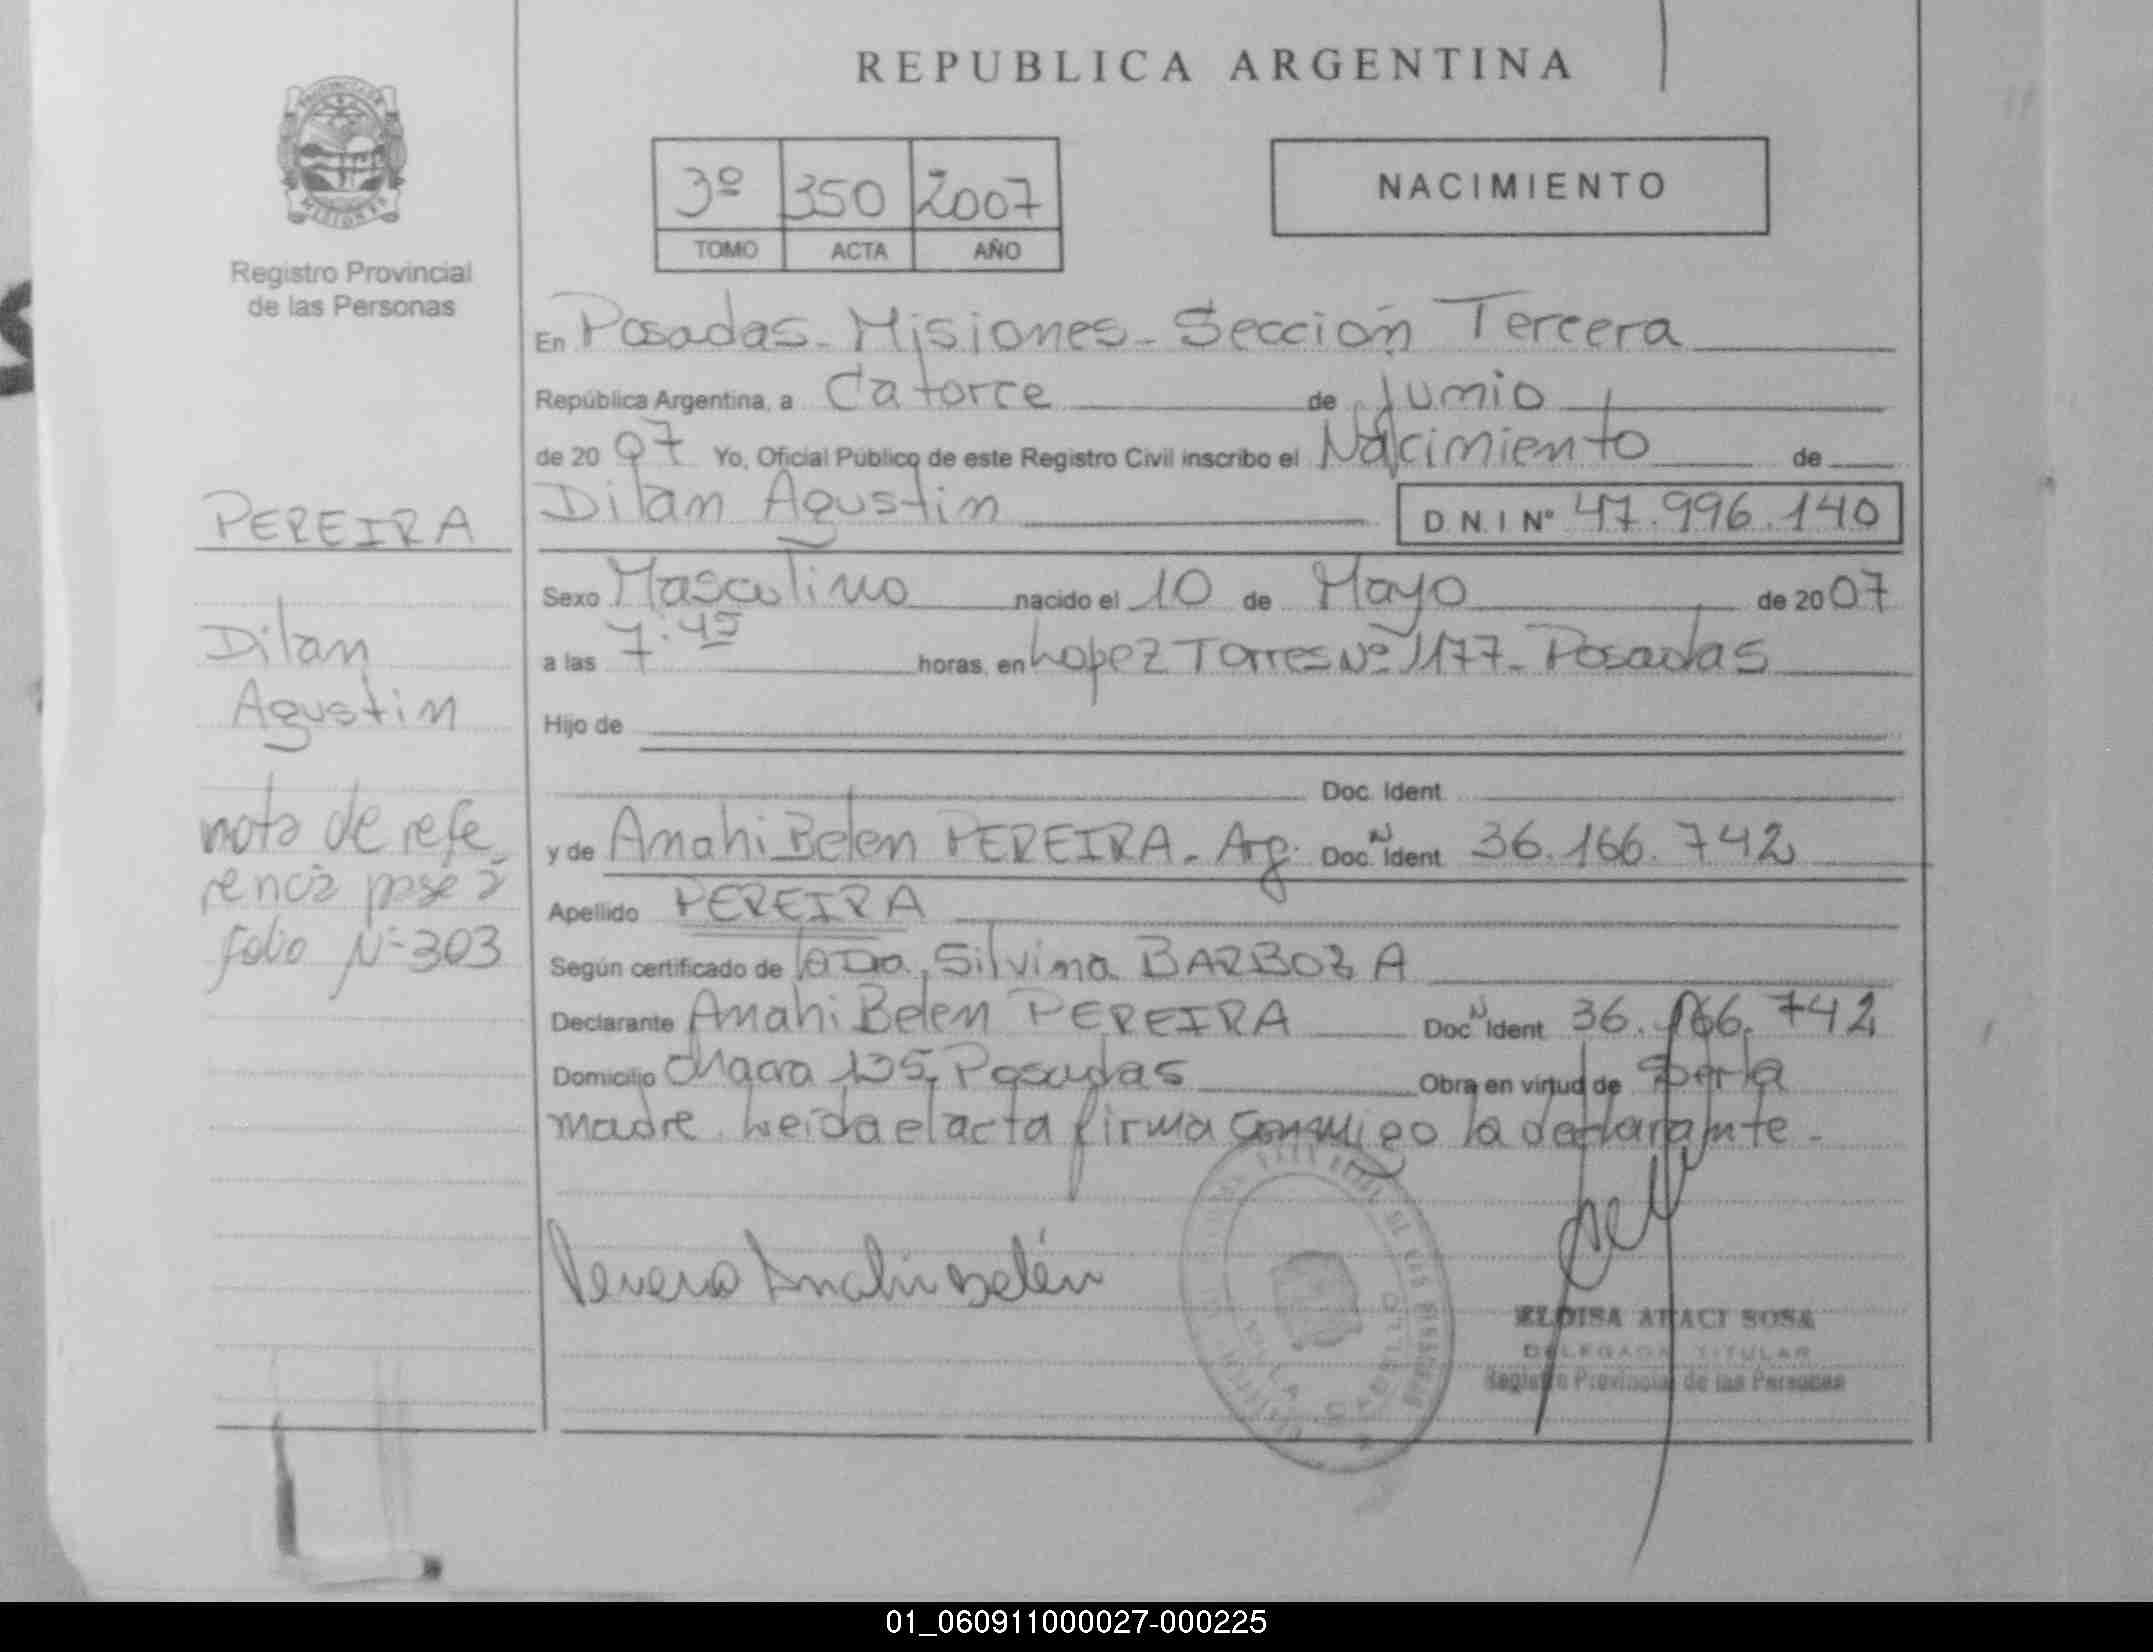 REPUBLICA ARGENTINA
3º 350 2007
TOMO ACTA AÑO
NACIMIENTO
PROVINCIA DE
MISIONES
Registro Provincial
de las Personas
En Posadas - Misiones - Sección Tercera
República Argentina, a Catorce de Junio
de 2007 Yo, Oficial Público de este Registro Civil inscribo el Nacimiento de
Dilan Agustin D.N.I Nº 47.996.140
PEREIRA
Dilan
Agustin
nota de refe
rencia pase a
folio Nº 303
Sexo Masculino nacido el 10 de Mayo de 2007
a las 7:45 horas, en Lopez Torres Nº 1177 - Posadas
Hijo de
Doc. Ident
y de Anahi Belen PEREIRA - Arg. Doc. N Ident 36.166.742
Apellido PEREIRA
Según certificado de la Dra, Silvina BARBOZA
Declarante Anahi Belen PEREIRA Doc N Ident 36.166.742
Domicilio Chacra 135, Posadas Obra en virtud de ser la
madre. Leida el acta firma conmigo la declarante -
Anahi Belén
ELOISA ARACI SOSA
DELEGADA TITULAR
Registro Provincial de las Personas
01_060911000027-000225